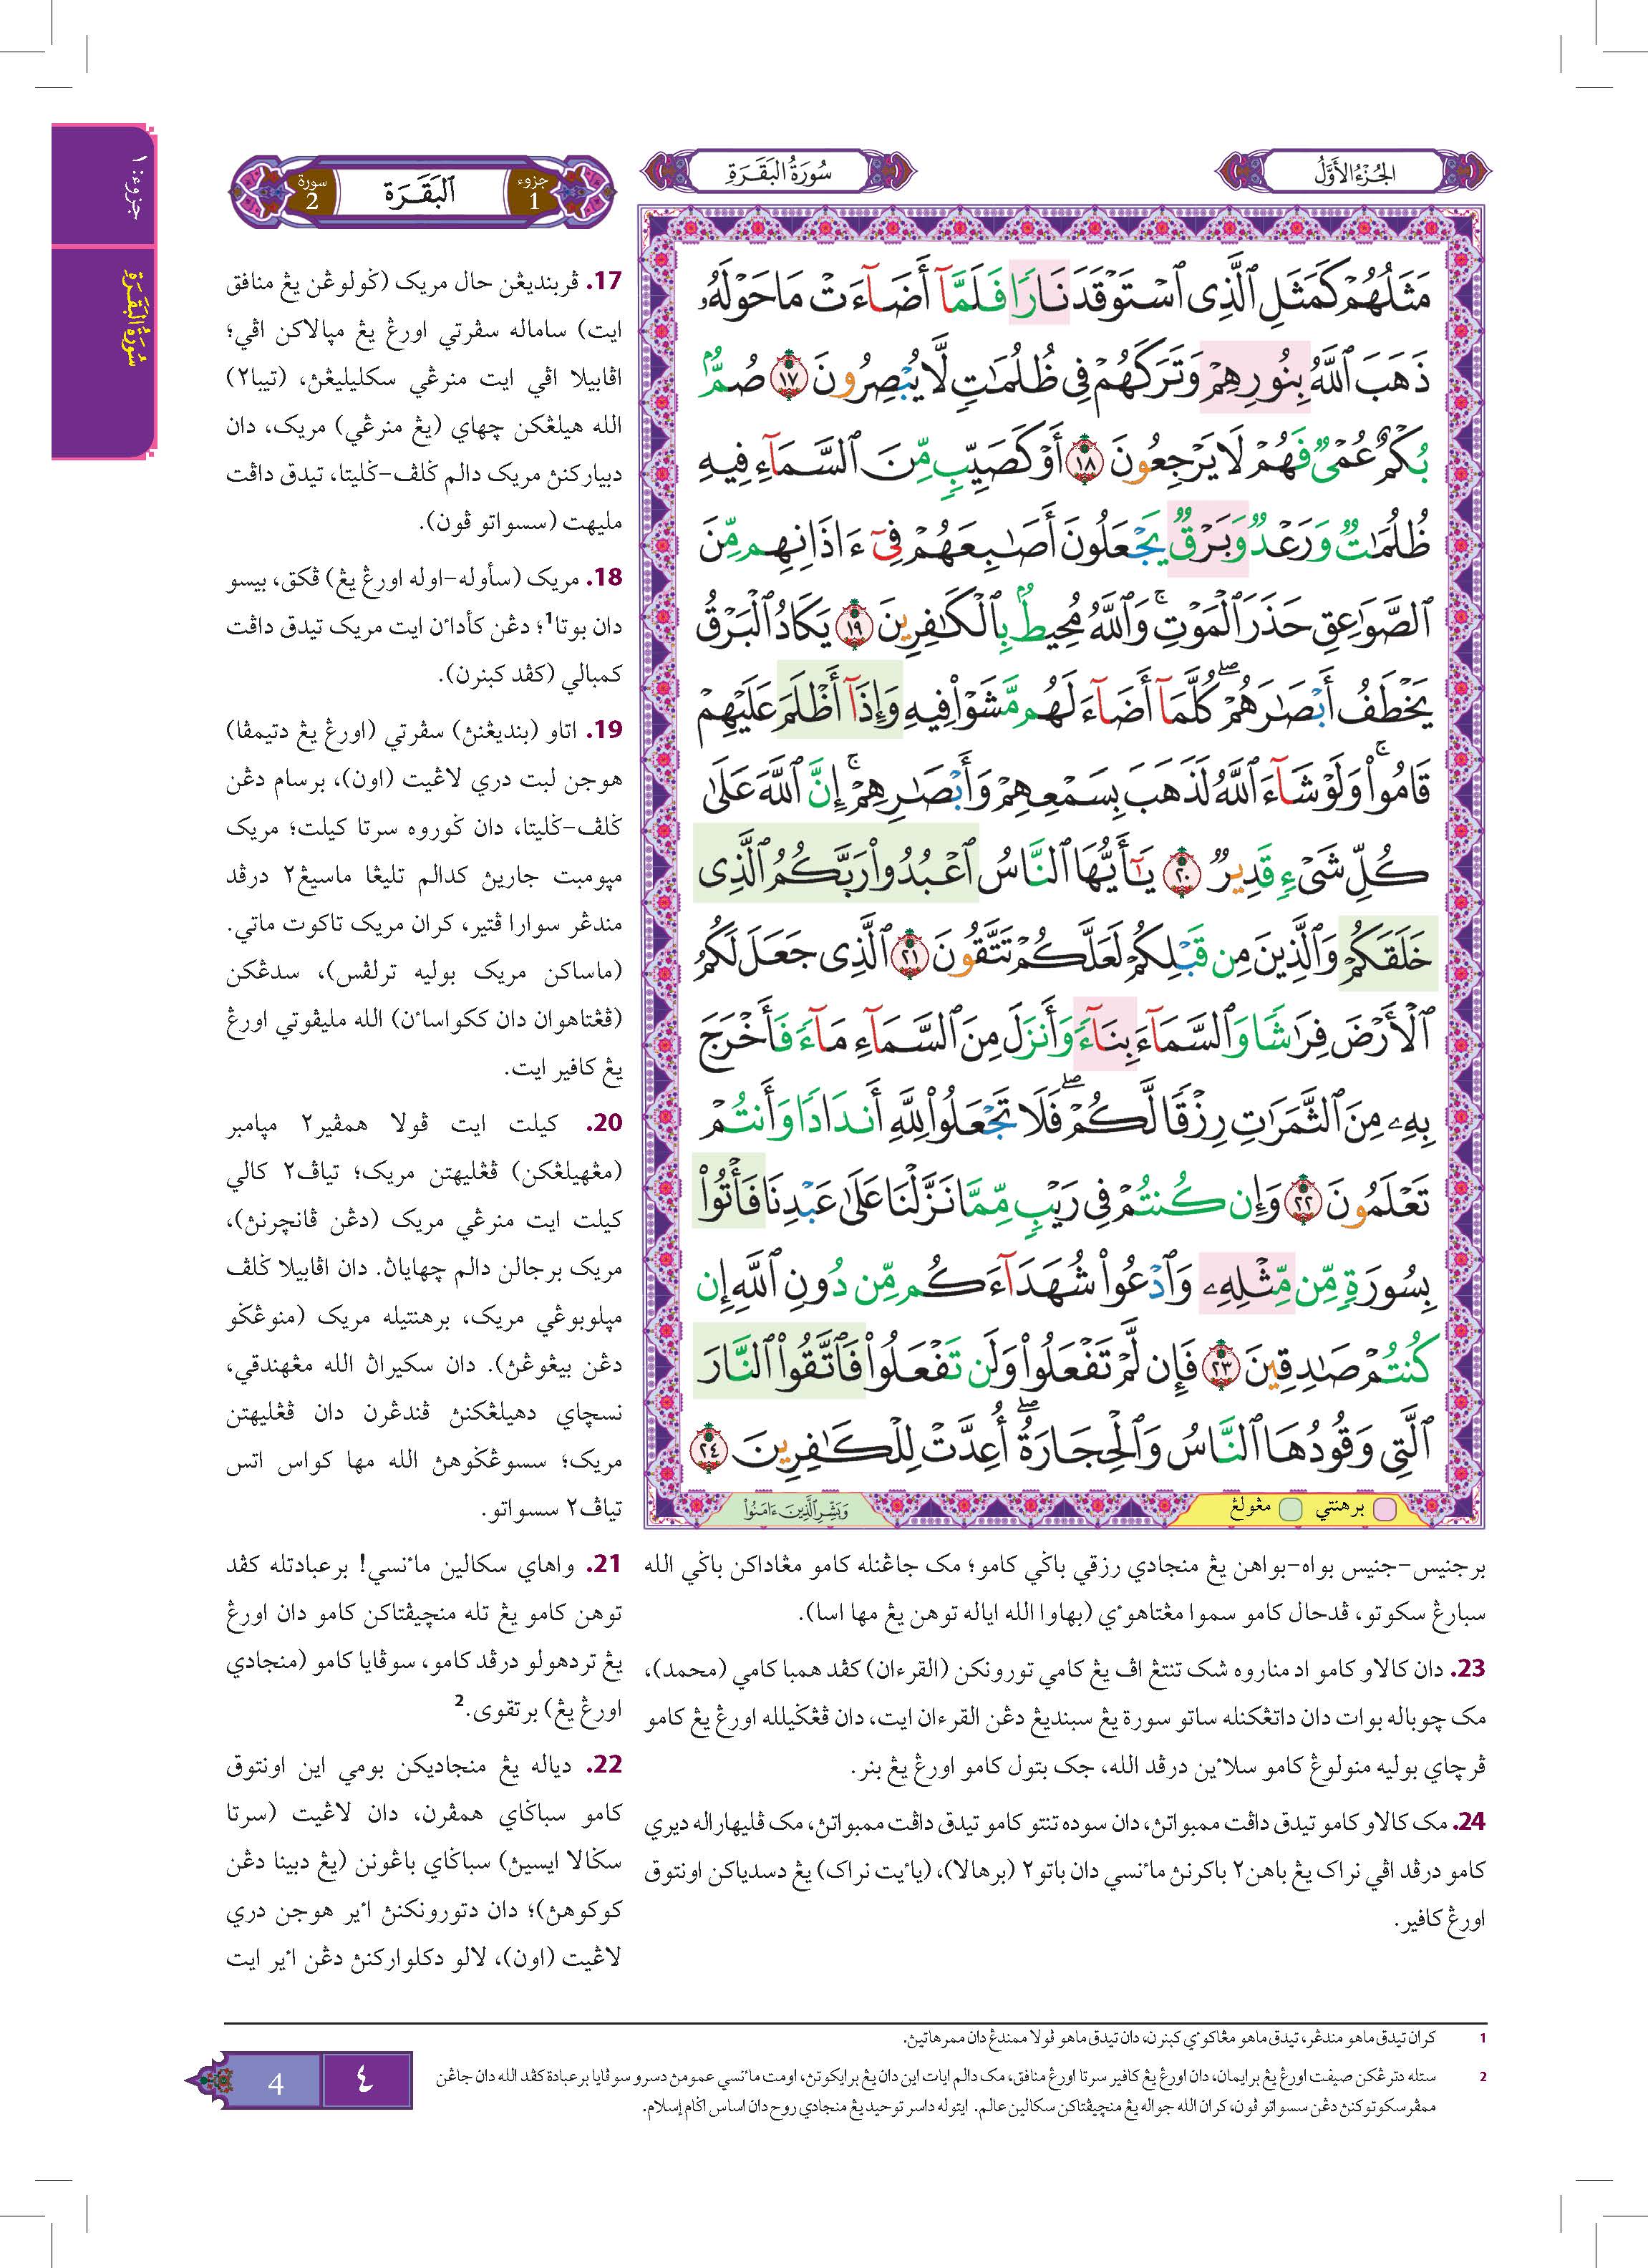 جزوء: ١
سُوۡرَةُ الۡبَقَرَةِ
الجُزۡءُ الأَوَّلُ
سُورَةُ البَقَرَةِ
جزوء 1
اَلۡبَقَـرَة
سورة 2
مَثَلُهُمۡ كَمَثَلِ ٱلَّذِي ٱسۡتَوۡقَدَ نَارٗا فَلَمَّآ أَضَآءَتۡ مَا حَوۡلَهُۥ
ذَهَبَ ٱللَّهُ بِنُورِهِمۡ وَتَرَكَهُمۡ فِي ظُلُمَٰتٖ لَّا يُبۡصِرُونَ ١٧ صُمُّۢ
بُكۡمٌ عُمۡيٞ فَهُمۡ لَا يَرۡجِعُونَ ١٨ أَوۡ كَصَيِّبٖ مِّنَ ٱلسَّمَآءِ فِيهِ
ظُلُمَٰتٞ وَرَعۡدٞ وَبَرۡقٞ يَجۡعَلُونَ أَصَٰبِعَهُمۡ فِيٓ ءَاذَانِهِم مِّنَ
ٱلصَّوَٰعِقِ حَذَرَ ٱلۡمَوۡتِۚ وَٱللَّهُ مُحِيطُۢ بِٱلۡكَٰفِرِينَ ١٩ يَكَادُ ٱلۡبَرۡقُ
يَخۡطَفُ أَبۡصَٰرَهُمۡۖ كُلَّمَآ أَضَآءَ لَهُم مَّشَوۡاْ فِيهِ وَإِذَآ أَظۡلَمَ عَلَيۡهِمۡ
قَامُواْۚ وَلَوۡ شَآءَ ٱللَّهُ لَذَهَبَ بِسَمۡعِهِمۡ وَأَبۡصَٰرِهِمۡۚ إِنَّ ٱللَّهَ عَلَىٰ
كُلِّ شَيۡءٖ قَدِيرٞ ٢٠ يَٰٓأَيُّهَا ٱلنَّاسُ ٱعۡبُدُواْ رَبَّكُمُ ٱلَّذِي
خَلَقَكُمۡ وَٱلَّذِينَ مِن قَبۡلِكُمۡ لَعَلَّكُمۡ تَتَّقُونَ ٢١ ٱلَّذِي جَعَلَ لَكُمُ
ٱلۡأَرۡضَ فِرَٰشٗا وَٱلسَّمَآءَ بِنَآءٗ وَأَنزَلَ مِنَ ٱلسَّمَآءِ مَآءٗ فَأَخۡرَجَ
بِهِۦ مِنَ ٱلثَّمَرَٰتِ رِزۡقٗا لَّكُمۡۖ فَلَا تَجۡعَلُواْ لِلَّهِ أَندَادٗا وَأَنتُمۡ
تَعۡلَمُونَ ٢٢ وَإِن كُنتُمۡ فِي رَيۡبٖ مِّمَّا نَزَّلۡنَا عَلَىٰ عَبۡدِنَا فَأۡتُواْ
بِسُورَةٖ مِّن مِّثۡلِهِۦ وَٱدۡعُواْ شُهَدَآءَكُم مِّن دُونِ ٱللَّهِ إِن
كُنتُمۡ صَٰدِقِينَ ٢٣ فَإِن لَّمۡ تَفۡعَلُواْ وَلَن تَفۡعَلُواْ فَٱتَّقُواْ ٱلنَّارَ
ٱلَّتِي وَقُودُهَا ٱلنَّاسُ وَٱلۡحِجَارَةُۖ أُعِدَّتۡ لِلۡكَٰفِرِينَ ٢٤
برهنتي مڠولڠ
وَبَشِّرِ ٱلَّذِينَ ءَامَنُواْ
17. ڤربنديڠن حال مريک (ݢولوڠن يڠ منافق
ايت) ساماله سڤرتي اورڠ يڠ مڽالاکن اڤي؛
اڤابيلا اڤي ايت منرڠي سکليليڠڽ، (تيبا٢)
الله هيلڠکن چهاي (يڠ منرڠي) مريک، دان
دبيارکنڽ مريک دالم ݢلڤ-ݢليتا، تيدق داڤت
مليهت (سسواتو ڤون).
18. مريک (سأوله-اوله اورڠ يڠ) ڤکق، بيسو
دان بوتا¹؛ دڠن کأداءن ايت مريک تيدق داڤت
کمبالي (کڤد کبنرن).
19. اتاو (بنديڠنڽ) سڤرتي (اورڠ يڠ دتيمڤا)
هوجن لبت دري لاڠيت (اون)، برسام دڠن
ݢلڤ-ݢليتا، دان ݢوروه سرتا کيلت؛ مريک
مڽومبت جاريڽ کدالم تليڠا ماسيڠ٢ درڤد
مندڠر سوارا ڤتير، کران مريک تاکوت ماتي.
(ماساکن مريک بوليه ترلڤس)، سدڠکن
(ڤڠتاهوان دان ککواساءن) الله مليڤوتي اورڠ
يڠ کافير ايت.
20. کيلت ايت ڤولا همڤير٢ مڽامبر
(مڠهيلڠکن) ڤڠليهتن مريک؛ تياڤ٢ کالي
کيلت ايت منرڠي مريک (دڠن ڤانچرنڽ)،
مريک برجالن دالم چهاياڽ. دان اڤابيلا ݢلڤ
مڽلوبوڠي مريک، برهنتيله مريک (منوڠݢو
دڠن بيڠوڠڽ). دان سکيراڽ الله مڠهندقي،
نسچاي دهيلڠکنڽ ڤندڠرن دان ڤڠليهتن
مريک؛ سسوڠݢوهڽ الله مها کواس اتس
تياڤ٢ سسواتو.
21. واهاي سکالين مأنسي! برعبادتله کڤد
توهن کامو يڠ تله منچيڤتاکن کامو دان اورڠ
يڠ تردهولو درڤد کامو، سوڤايا کامو (منجادي
اورڠ يڠ) برتقوى.²
22. دياله يڠ منجاديکن بومي اين اونتوق
کامو سباݢاي همڤرن، دان لاڠيت (سرتا
سݢالا ايسيڽ) سباݢاي باڠونن (يڠ دبينا دڠن
کوکوهڽ)؛ دان دتورونکنڽ اءير هوجن دري
لاڠيت (اون)، لالو دکلوارکنڽ دڠن اءير ايت
برجنيس-جنيس بواه-بواهن يڠ منجادي رزقي باݢي کامو؛ مک جاڠنله کامو مڠاداکن باݢي الله
سبارڠ سکوتو، ڤدحال کامو سموا مڠتاهوءي (بهاوا الله اياله توهن يڠ مها اسا).
23. دان کالاو کامو اد مناروه شک تنتڠ اڤ يڠ کامي تورونکن (القرءان) کڤد همبا کامي (محمد)،
مک چوباله بوات دان داتڠکنله ساتو سورة يڠ سبنديڠ دڠن القرءان ايت، دان ڤڠݢيلله اورڠ يڠ کامو
ڤرچاي بوليه منولوڠ کامو سلاءين درڤد الله، جک بتول کامو اورڠ يڠ بنر.
24. مک کالاو کامو تيدق داڤت ممبواتڽ، دان سوده تنتو کامو تيدق داڤت ممبواتڽ، مک ڤليهاراله ديري
کامو درڤد اڤي نراک يڠ باهن٢ باکرنڽ مأنسي دان باتو٢ (برهالا)، (ياءيت نراک) يڠ دسدياکن اونتوق
اورڠ کافير.
1 کران تيدق ماهو مندڠر، تيدق ماهو مڠاکوءي کبنرن، دان تيدق ماهو ڤولا ممندڠ دان ممرهاتيڽ.
2 ستله دترڠکن صيفت اورڠ يڠ برايمان، دان اورڠ يڠ کافير سرتا اورڠ منافق، مک دالم ايات اين دان يڠ برايکوتڽ، اومت مأنسي عمومڽ دسرو سوڤايا برعبادة کڤد الله دان جاڠن
ممڤرسکوتوکنڽ دڠن سسواتو ڤون، کران الله جواله يڠ منچيڤتاکن سکالين عالم. ايتوله داسر توحيد يڠ منجادي روح دان اساس اݢام إسلام.
٤
4